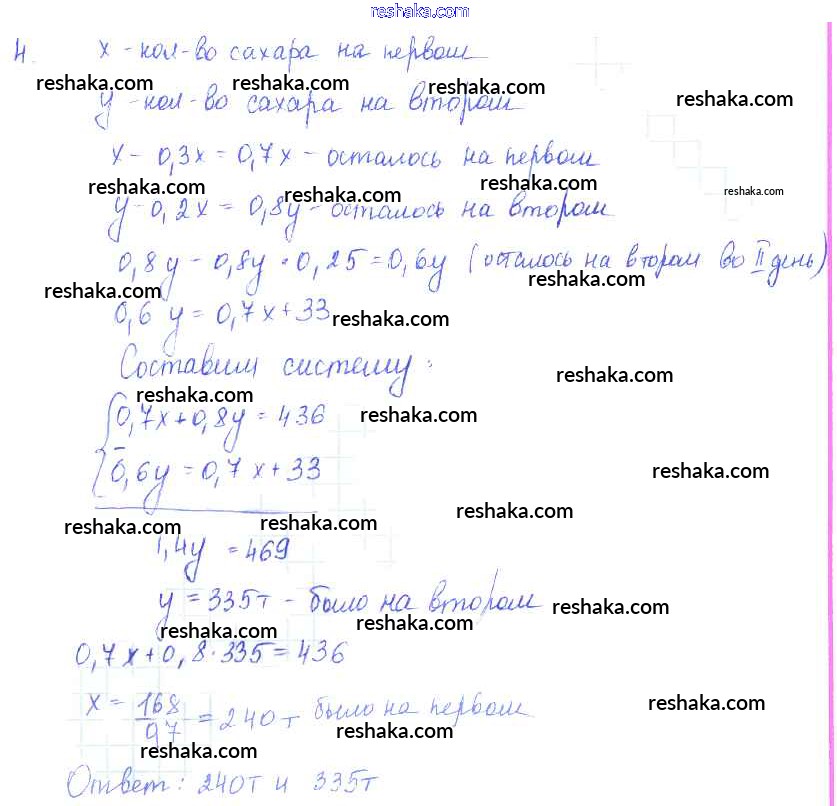 reshaka.com
4. x - кол-во сахара на первом
reshaka.com reshaka.com reshaka.com reshaka.com
y - кол-во сахара на втором
x - 0,3x = 0,7x - осталось на первом
reshaka.com reshaka.com reshaka.com reshaka.com
y - 0,2x = 0,8y - осталось на втором
0,8y - 0,8y · 0,25 = 0,6y (осталось на втором во II день)
reshaka.com reshaka.com
0,6 y = 0,7x + 33 reshaka.com
Составим систему:
reshaka.com reshaka.com
0,7x + 0,8y = 436 reshaka.com
0,6y = 0,7x + 33 reshaka.com
reshaka.com reshaka.com reshaka.com
1,4y = 469
y = 335т - было на втором reshaka.com
reshaka.com reshaka.com
0,7x + 0,8 · 335 = 436
x = 168/97 = 240т было на первом reshaka.com
reshaka.com reshaka.com
Ответ: 240т и 335т
reshaka.com